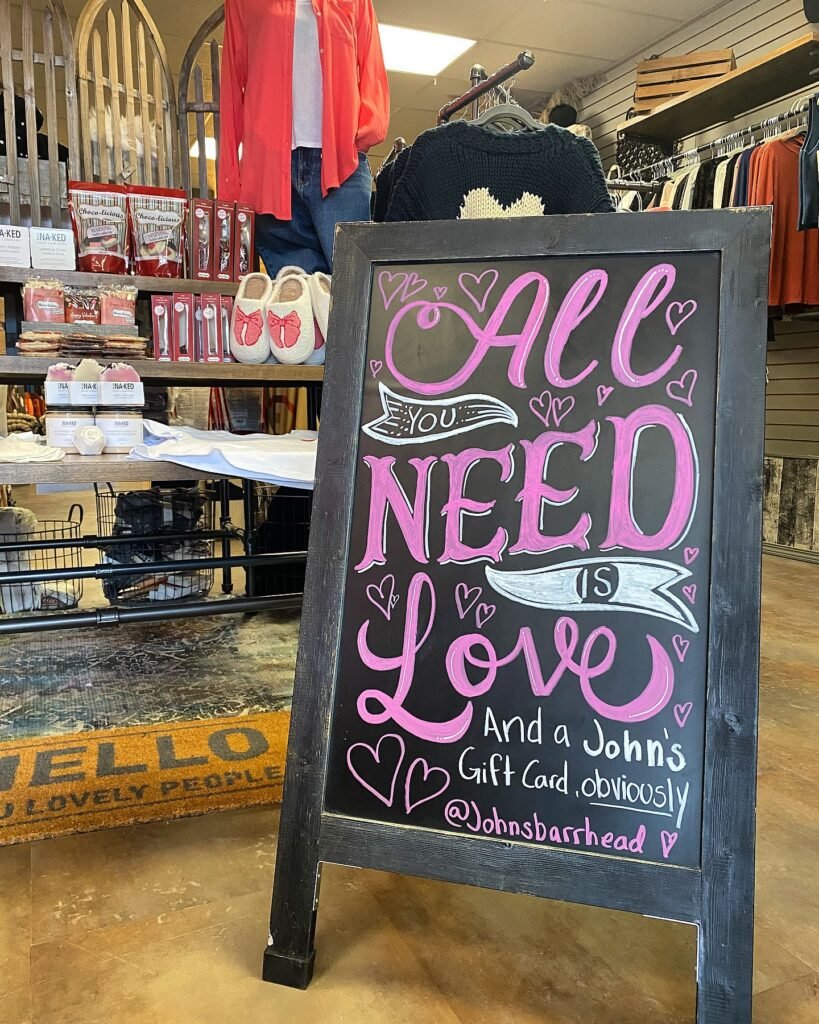 All
YOU
NEED
IS
Love
And a John's
Gift Card, obviously
@Johnsbarrhead
HELLO
LOVELY PEOPLE
Choco-licious
Choco-licious
NA-KED
NA-KED
NA-KED